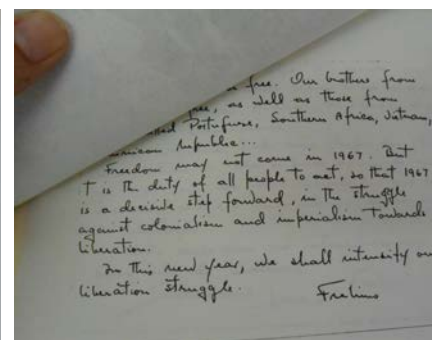 free. Our brothers from
free, as well as those from
Portuguse, Southern Africa, Vietnam,
Republic...
Freedom may not come in 1967. But
t is the duty of all people to act, so that 1967
is a decisive step forward, in the struggle
against colonialism and imperialism towards
liberation.
In this new year, we shall intensify our
liberation struggle.
Frelimo